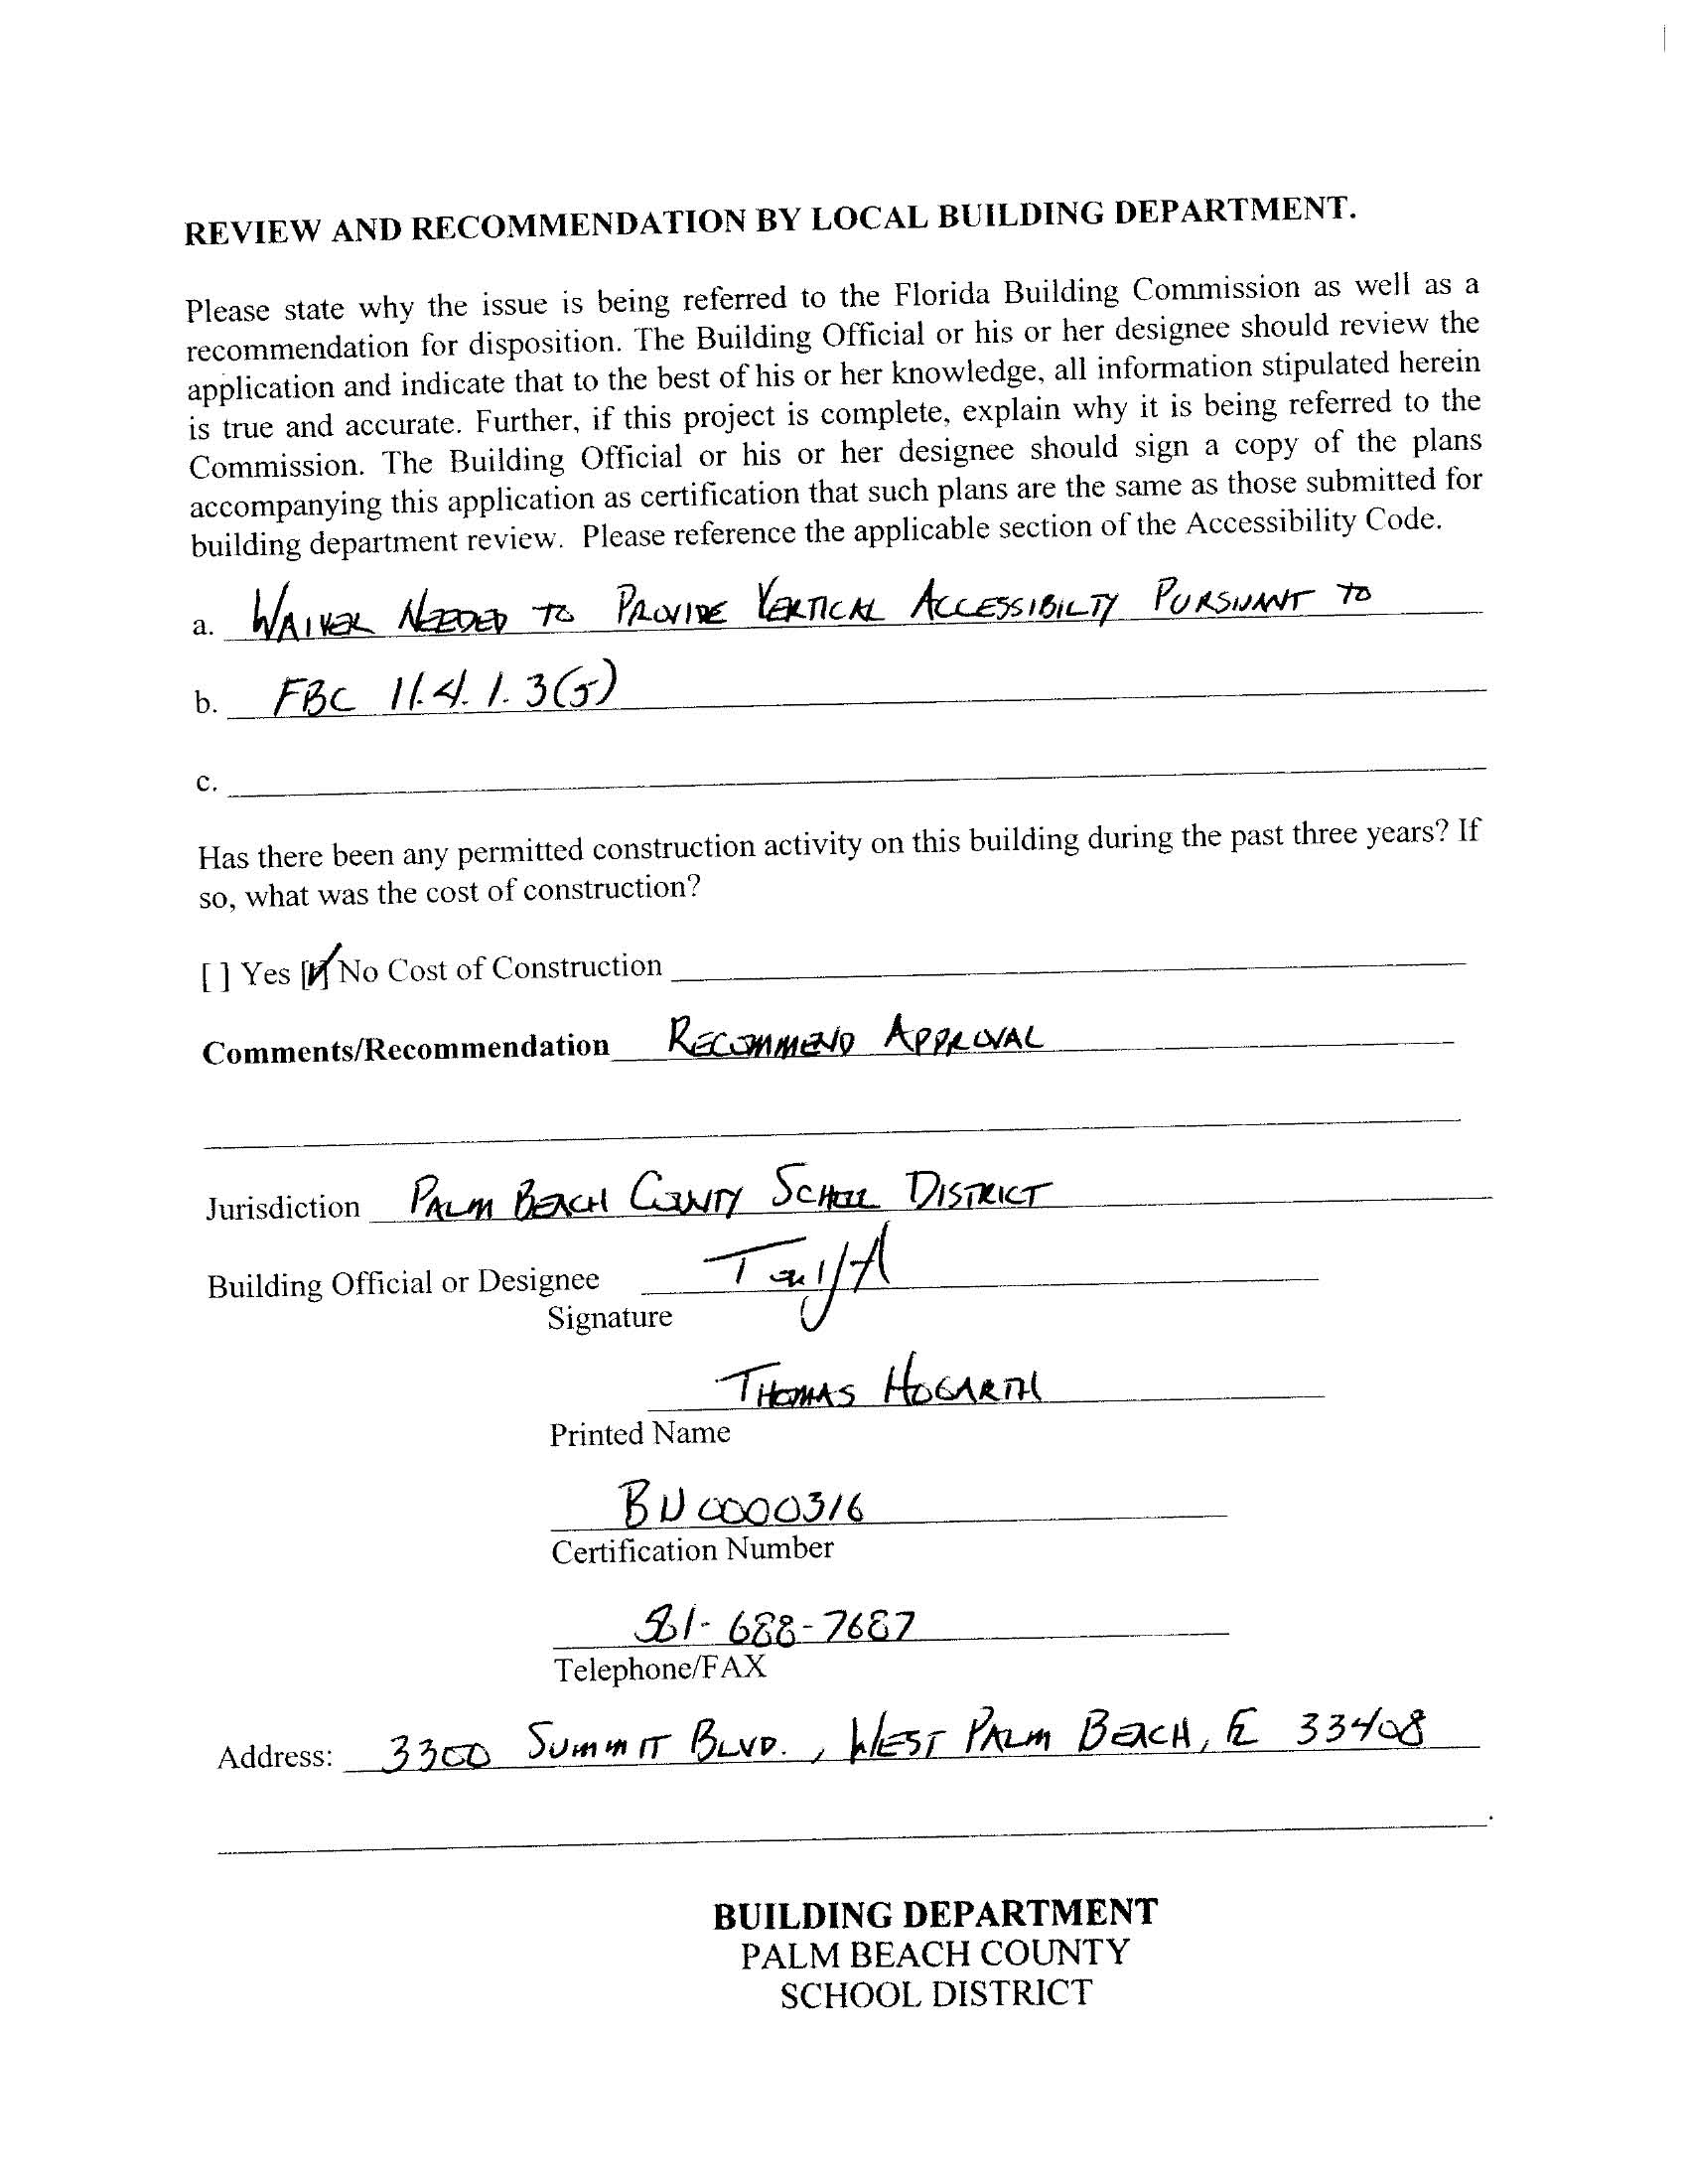 REVIEW AND RECOMMENDATION BY LOCAL BUILDING DEPARTMENT.
Please state why the issue is being referred to the Florida Building Commission as well as a
recommendation for disposition. The Building Official or his or her designee should review the
application and indicate that to the best of his or her knowledge, all information stipulated herein
is true and accurate. Further, if this project is complete, explain why it is being referred to the
Commission. The Building Official or his or her designee should sign a copy of the plans
accompanying this application as certification that such plans are the same as those submitted for
building department review. Please reference the applicable section of the Accessibility Code.
a. WAIVER NEEDED TO PROVIDE VERTICAL ACCESSIBILTY PURSUANT TO
b. FBC 11.4.1.3(5)
c.
Has there been any permitted construction activity on this building during the past three years? If
so, what was the cost of construction?
[ ] Yes [✓] No Cost of Construction
Comments/Recommendation RECOMMEND APPROVAL
Jurisdiction PALM BEACH COUNTY SCHOOL DISTRICT
Building Official or Designee
Signature
THOMAS HOGARTH
Printed Name
BU0000316
Certification Number
561-688-7687
Telephone/FAX
Address: 3300 SUMMIT BLVD., WEST PALM BEACH, FL 33408
BUILDING DEPARTMENT
PALM BEACH COUNTY
SCHOOL DISTRICT